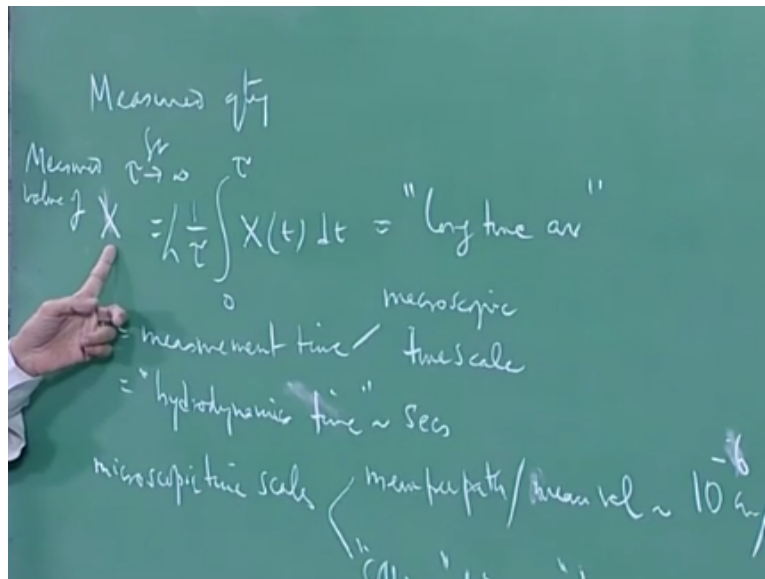 Measured qty
Measured
value of X = 1/τ ∫₀^τ X(t) dt = "long time av"
τ → ∞
macroscopic
= measurement time / timescale
= "hydrodynamic time" ~ secs
microscopic time scales < mean free path / mean vel ~ 10⁻⁶ cm/